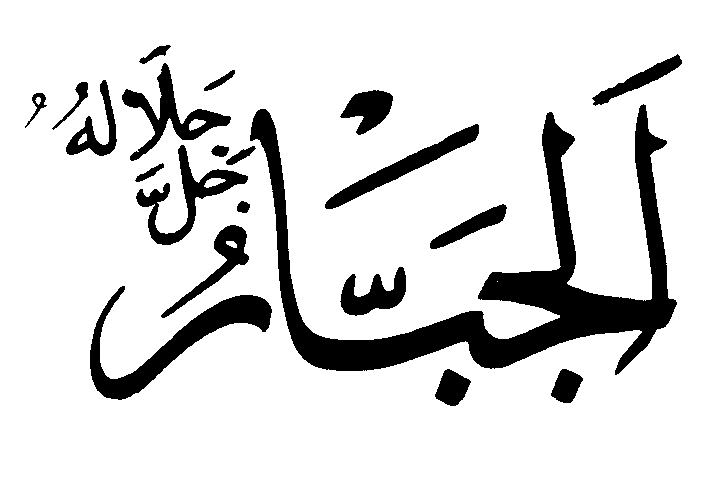 اَلْجَبَّارُ
جَلَّ جَلَالَهُ